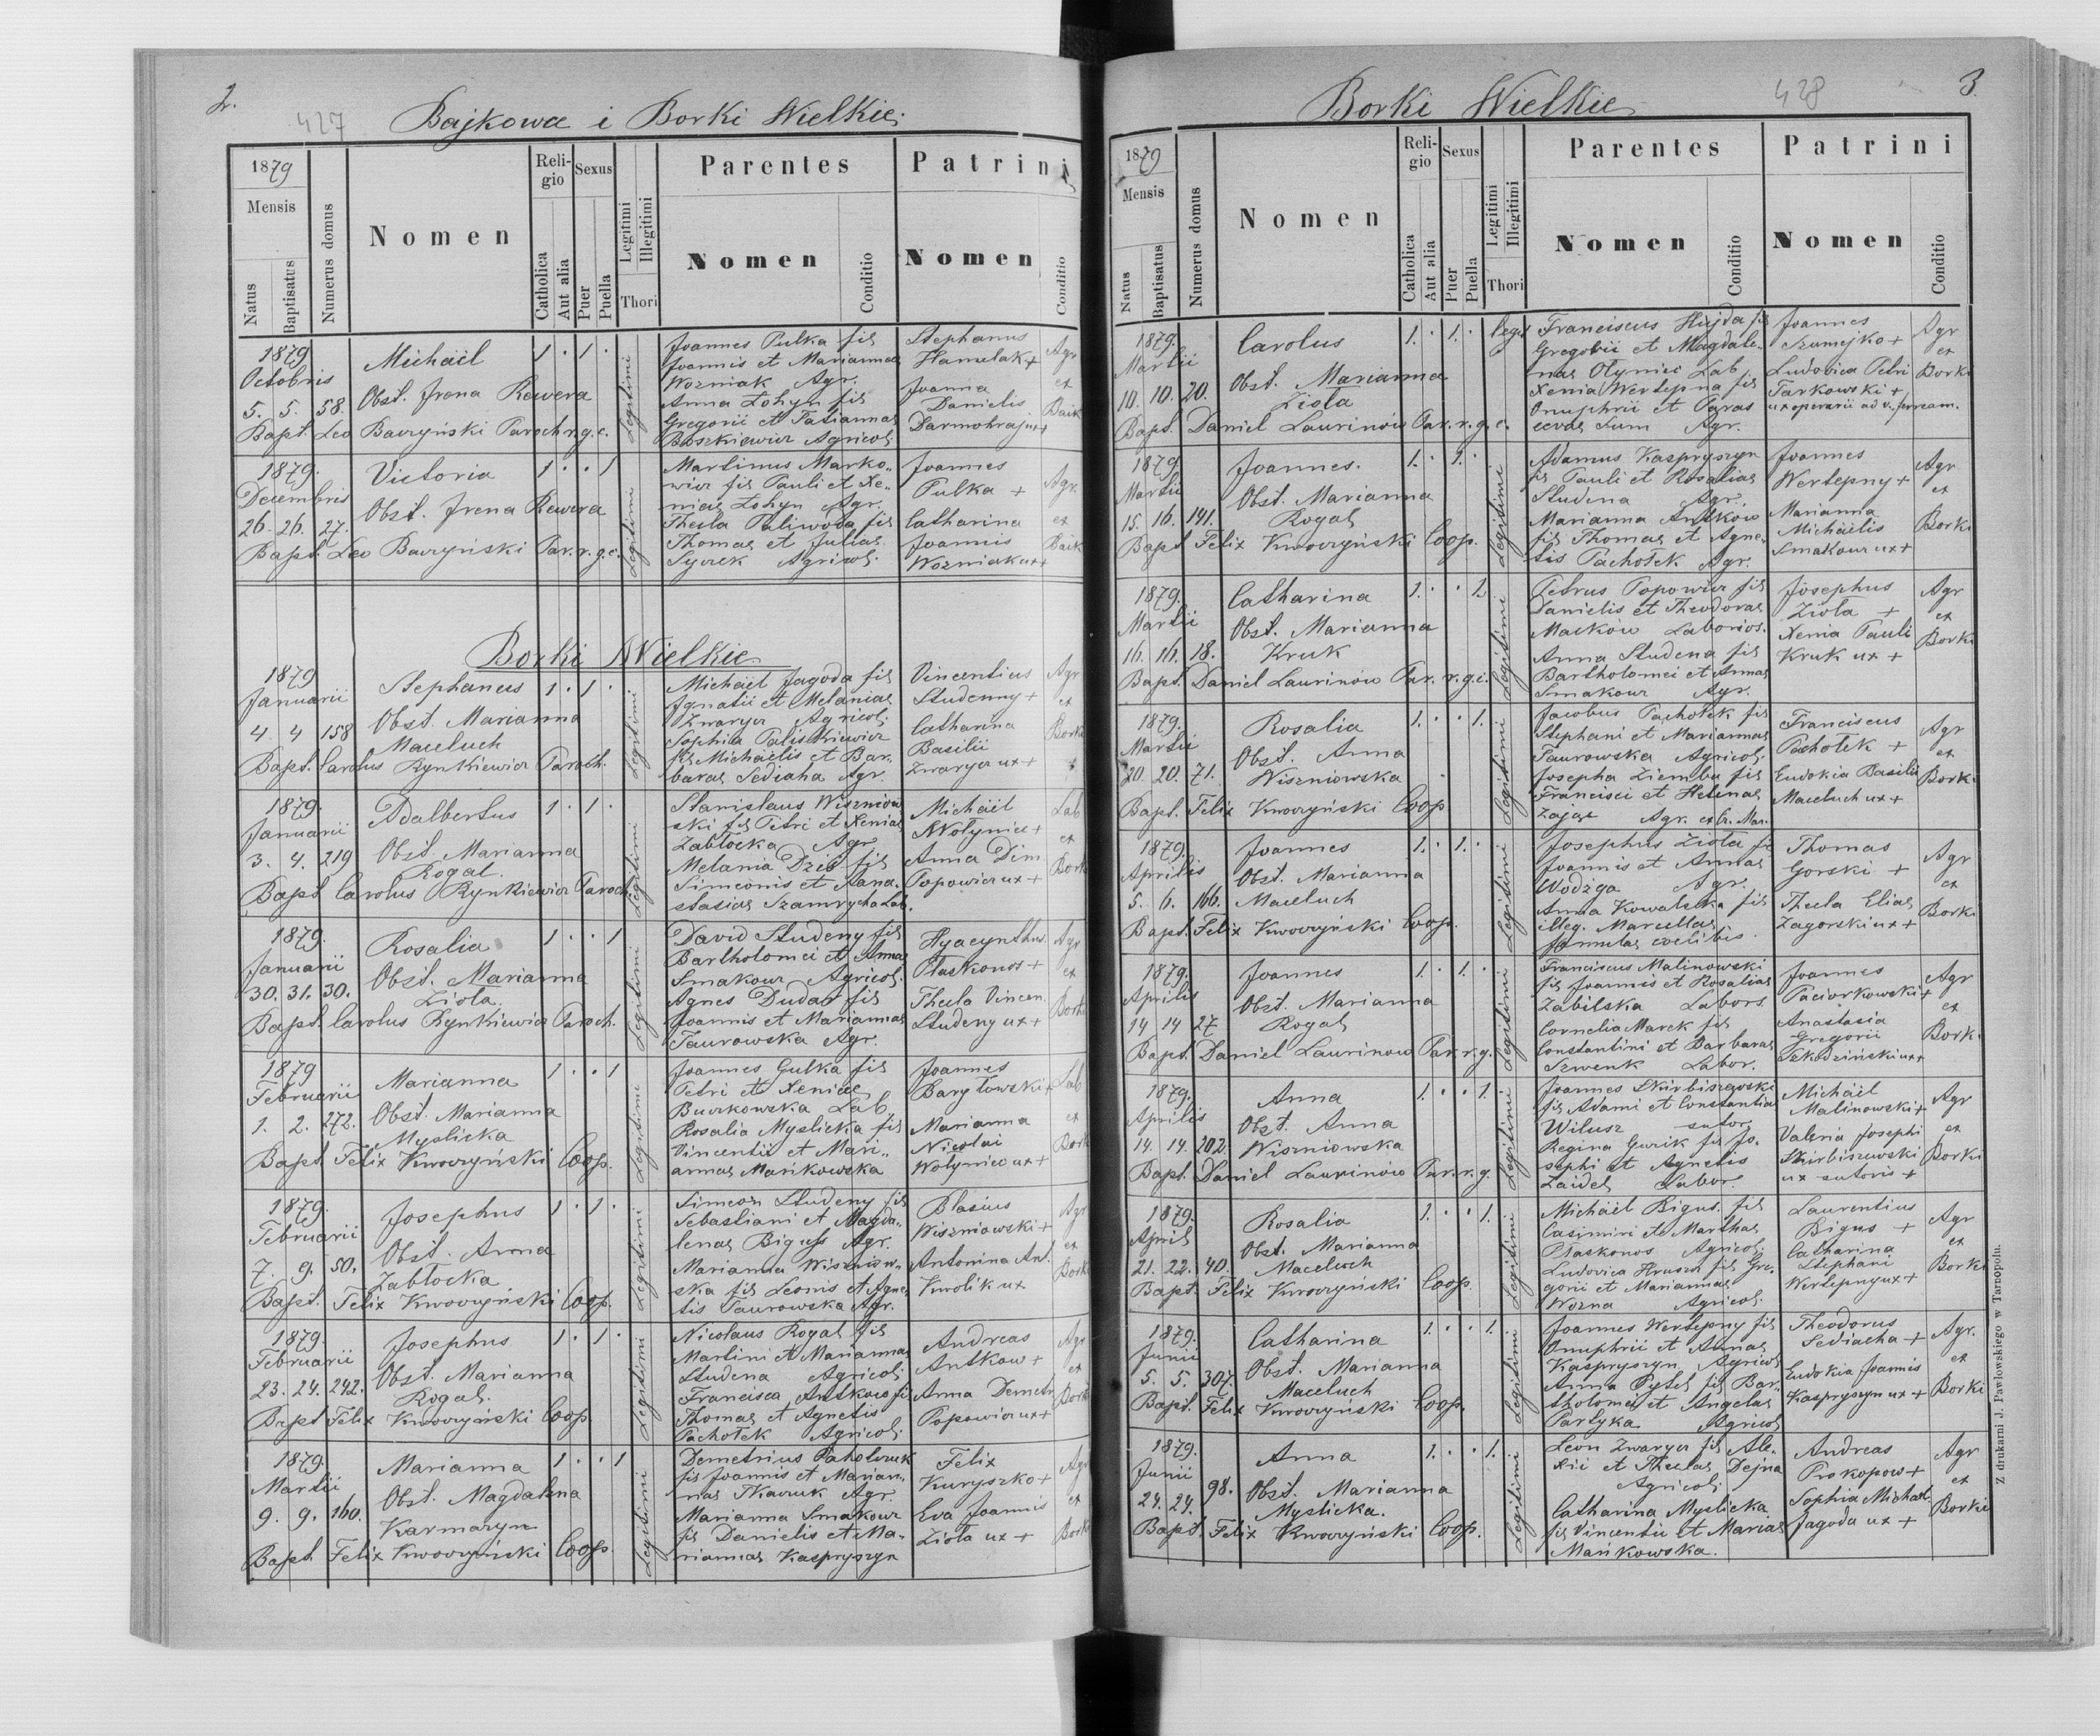 2.
427
Bajkowa i Borki Wielkie.
1879
Mensis
Natus
Baptisatus
Numerus domus
Nomen
Religio
Catholica
Aut alia
Sexus
Puer
Puella
Legitimi
Illegitimi
Thori
Parentes
Nomen
Conditio
Patrini
Nomen
Conditio
1879
Octobris
5. 5. 58.
Michaël
Obst. Irena Rewera
Bapt. Leo Baczyński Paroch r. g. c.
1 . 1 .
Legitimi
Joannes Pulka fil
Joannis et Mariannae
Woźniak Agr.
Anna Łohyn fil
Gregorii et Tatiannae
Agricol.
Stephanus
Hamulak +
Joanna
Danielis
Agr
et
Baik
1879.
Decembris
26. 26. 27.
Victoria
Obst. Irena Rewera
Bapt. Leo Baczyński Par. r. g. c.
1 . . 1
Legitimi
Martinus Marko-
wicz fil Pauli et Xe-
niae Łohyn Agr.
Thecla Paliwoda fil
Thomae et Juliae
Agricol.
Joannes
Pulka +
Catharina
Joannis
Woźniak ux +
Agr.
et
Baik
Borki Wielkie
1879
Januarii
4. 4 158
Stephanus
Obst. Marianna
Maceluch
Bapt. Carolus Rynkiewicz Paroch.
1 . 1 .
Legitimi
Michaël Jagoda fil
Ignatii et Melaniae
Zwarycz Agricol.
Sophia Paliskiewicz
fil Michaelis et Bar-
barae Sediaha Agr.
Vincentius
Studenny +
Catharina
Basilii
Zwarycz ux +
Agr
et
Borki
1879.
Januarii
3. 4. 219
Adalbertus
Obst. Marianna
Rogal.
Bapt. Carolus Rynkiewicz Paroch.
1 . 1 .
Legitimi
Stanislaus Wiszniow
ski fil Petri et Xeniae
Zabłocka Agr
Melania Dziś fil
Simeonis et Ana-
stasiae Szamrycha Lab.
Michaël
Wołyniec +
Anna Dim
Popowicz ux +
Lab
et
Bork
1879.
Januarii
30. 31. 30.
Rosalia
Obst. Marianna
Zioła
Bapt. Carolus Rynkiewicz Paroch.
1 . . 1
Legitimi
David Studeny fil
Bartholomei et Annae
Smakour Agricol.
Agnes Duda fil
Joannis et Mariannae
Taurowska Agr.
Hyacynthus
Płaskonos +
Thecla Vincen.
Studeny ux +
Agr
et
Borki
1879
Februarii
1. 2. 272.
Marianna
Obst. Marianna
Myslicka
Bapt Felix Kwoczyński Coop.
1 . . 1
Legitimi
Joannes Gulka fil
Petri et Xeniae
Buczkowska Lab
Rosalia Myslicka fil
Vincentii et Mari-
annae Mańkowska
Joannes
Baryłowski +
Marianna
Nicolai
Wołyniec ux +
Lab
et
Bork
1879.
Februarii
7. 9. 50.
Josephus
Obst. Anna
Zabłocka
Bapt. Felix Kwoczyński Coop.
1 . 1 .
Legitimi
Simeon Studeny fil
Sebastiani et Magda-
lenae Bigus Agr.
Marianna Wiszniow-
ska fil Leonis et Agne-
tis Taurowska Agr.
Blasius
Wiszniowski +
Antonina Ant.
Kwolik ux
Agr
et
Bork
1879.
Februarii
23. 24. 242.
Josephus
Obst. Marianna
Rogal.
Bapt Felix Kwoczyński Coop
1 . 1 .
Legitimi
Nicolaus Rogal fil
Martini et Mariannae
Studena Agricol
Francisca Antkow fil
Thomae et Agnetis
Pachołek Agricol.
Andreas
Antkow +
Anna Demetr
Popowicz ux +
Agr
et
Bork
1879.
Martii
9. 9. 160.
Marianna
Obst. Magdalena
Karmazyn
Bapt Felix Kwoczyński Coop.
1 . . 1
Legitimi
Demetrius Paholczuk
fil Joannis et Marian-
nae Tkaczuk Agr.
Marianna Smakour
fil Danielis et Ma-
riannae Kaspryszyn
Felix
Kuryszko +
Eva Joannis
Zioła ux +
Agr
et
Bork
3
428
Borki Wielkie
1879
Mensis
Natus
Baptisatus
Numerus domus
Nomen
Religio
Catholica
Aut alia
Sexus
Puer
Puella
Legitimi
Illegitimi
Thori
Parentes
Nomen
Conditio
Patrini
Nomen
Conditio
1879.
Martii
10. 10. 20.
Carolus
Obst. Marianna
Zioła
Bapt. Daniel Laurinów Par. r. g. c.
1. . 1. .
legit
Franciscus Hujda fil
Gregorii et Magdale-
nae Ołyniec Lab
Xenia Wertepna fil
Onuphrii et Paras
cevae Lum Agr.
Joannes
Szumejko +
Ludovica Petri
Tarkowski +
ux operarii ad v. ferream.
Agr
et
Borki
1879.
Martii
15. 16. 141.
Joannes.
Obst. Marianna
Rogal
Bapt Felix Kwoczyński Coop.
1. . 1. .
Legitimi
Adamus Kaspryszyn
fil Pauli et Rosaliae
Studena Agr.
Marianna Antków
fil Thomae et Agne-
tis Pachołek Agr.
Joannes
Wertepny +
Marianna
Michaëlis
Smakour ux +
Agr
et
Borki
1879.
Martii
16. 16. 18.
Catharina
Obst. Marianna
Kruk
Bapt. Daniel Laurinów Par. r. g. c.
1. . . 1.
Legitimi
Petrus Popowicz fil
Danielis et Theodorae
Maćków Laborios.
Anna Studena fil
Bartholomei et Annae
Smakour Agr.
Josephus
Zioła +
Xenia Pauli
Kruk ux +
Agr
et
Borki
1879.
Martii
20. 20. 71.
Rosalia
Obst. Anna
Wiszniowska
Bapt. Felix Kwoczyński Coop
1. . . 1.
Legitimi
Jacobus Pachołek fil
Stephani et Mariannae
Taurowska Agricol.
Josepha Ziemba fil
Francisci et Helenae
Zając Agr.
Franciscus
Pachołek +
Eudokia Basilii
Maceluch ux +
Agr
et
Bork.
1879.
Aprilis
5. 6. 166.
Joannes
Obst. Marianna
Maceluch
Bapt. Felix Kwoczyński Coop.
1. . 1. .
Legitimi
Josephus Zioła fil
Joannis et Annae
Wodzga Agr.
Anna Kowalska fil
illeg. Marcellae
famulae coelibis.
Thomas
Gorski +
Thecla Eliae
Zagorski ux +
Agr
et
Borki
1879.
Aprilis
14 14 27
Joannes
Obst. Marianna
Rogal
Bapt. Daniel Laurinow Par. r. g.
1. . 1. .
Legitimi
Franciscus Malinowski
fil Joannis et Rosaliae
Zabilska Labors
Cornelia Marek fil
Constantini et Barbarae
Szwenk Labor.
Joannes
Paciorkowski +
Anastasia
Gregorii
Szkodziński ux +
Agr
et
Bork.
1879.
Aprilis
14. 14. 202.
Anna
Obst. Anna
Wiszniowska
Bapt. Daniel Laurinów Par. r. g.
1. . . 1.
Legitimi
Joannes Skirbiszewski
fil Adami et Constantia
Wilusz sutor
Regina Gurik fil Jo-
sephi et Agnetis
Zaidel Labor.
Michaël
Malinowski +
Valeria Josephi
Skirbiszewski
ux sutoris +
Agr
et
Borki
1879.
April
21. 22. 40.
Rosalia
Obst. Marianna
Maceluch
Bapt. Felix Kwoczyński Coop.
1. . . 1.
Legitimi
Michaël Bigus fil
Casimiri et Marthae
Płaskonos Agricol.
Ludovica Hruszcz fil Gre-
gorii et Mariannae
Wozna Agricol.
Laurentius
Bigus +
Catharina
Stephani
Wertepny ux +
Agr
et
Borki
1879.
Junii
5. 5. 307.
Catharina
Obst. Marianna
Maceluch
Bapt. Felix Kwoczyński Coop.
1. . . 1.
Legitimi
Joannes Wertepny fil
Onuphrii et Annae
Kaspryszyn Agricol
Anna Pytel fil Bar-
tholomei et Angelae
Partyka Agricol
Theodorus
Sediacha +
Eudokia Joannis
Kaspryszyn ux +
Agr.
et
Borki
1879.
Junii
24. 24. 98.
Anna
Obst. Marianna
Myslicka.
Bapt. Felix Kwoczyński Coop.
1. . . 1.
Legitimi
Leon Zwarycz fil Ale-
xii et Theclae Dejna
Agricol.
Catharina Myslicka
fil Vincentii et Mariae
Mańkowska.
Andreas
Prokopow +
Sophia Michael.
Jagoda ux +
Agr
et
Borki
Z drukarni J. Pawłowskiego w Tarnopolu.